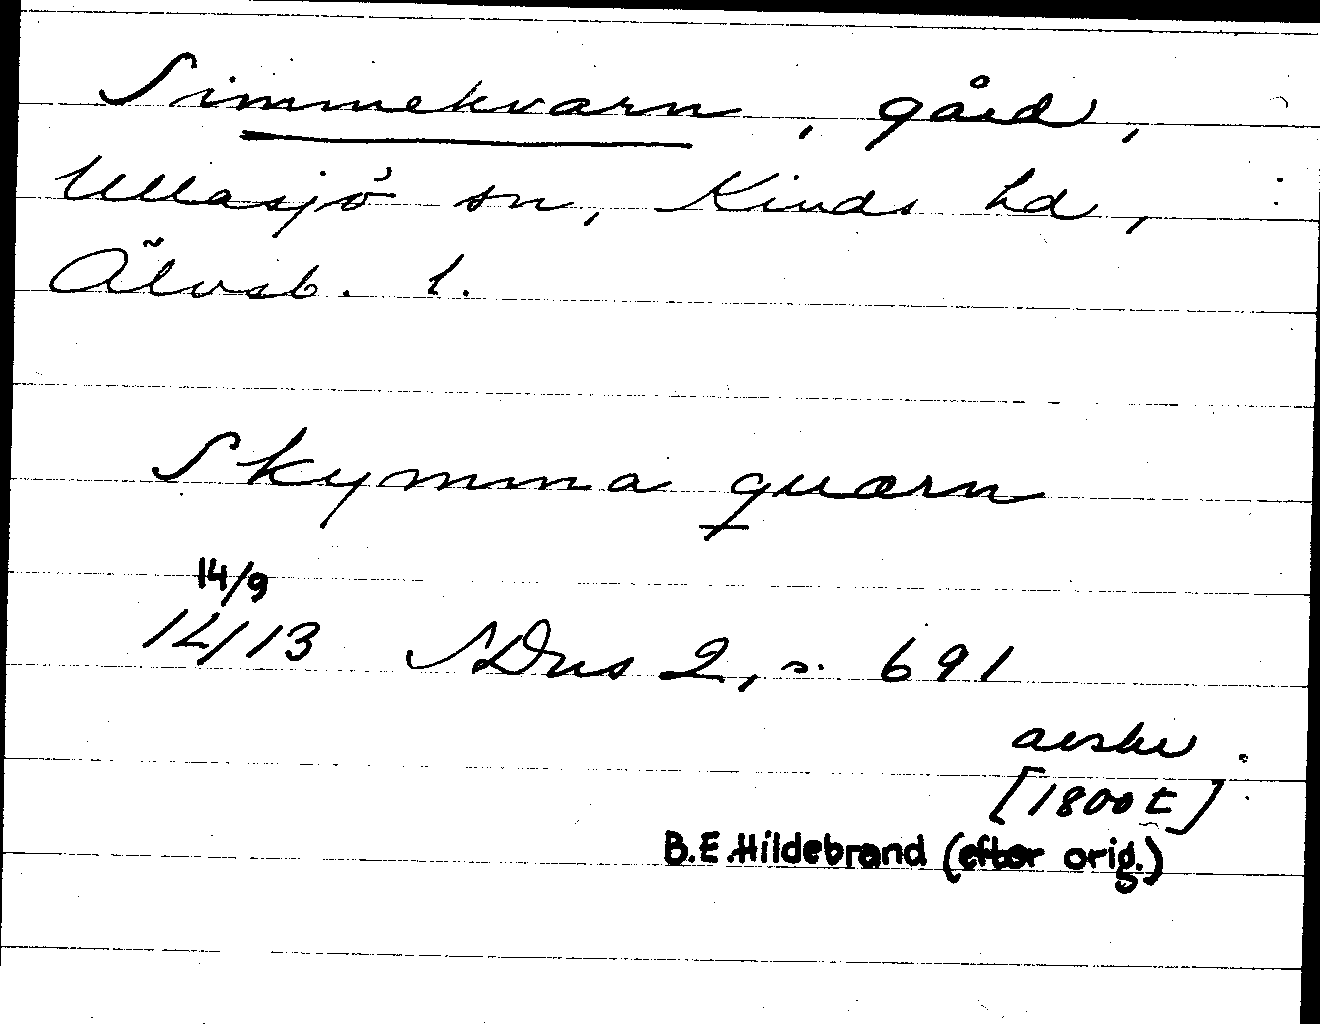 Simmekvarn, gård,
Ullasjö sn, Kinds hd,
Älvsb. l.
Skymma quærn
14/9
1413 SDns 2, s. 691
avskr.
[1800 t]
B.E.Hildebrand (efter orig.)